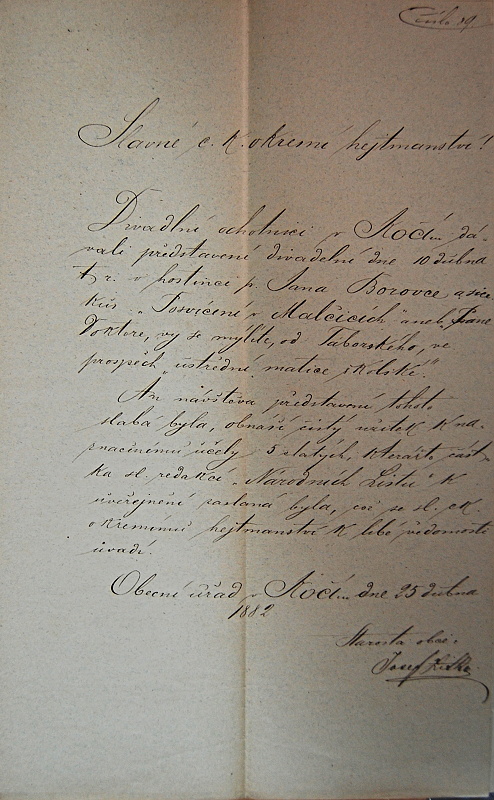 Číslo 19
Slavné c. k. okresní hejtmanství!
Divadlní ochotníci v Stočí... dá-
vali představení divadelní dne 10 dubna
t. r. v hostinci p. Jana Borovce a sice
kus „Posvícení v Malčicích" aneb „Pane
Doktore, vy se mýlíte, od Táborského, ve
prospěch „ústřední matice školské."
An návštěva představení tohoto
slabá byla, obnáší čistý užitek k na-
značenému účely 5 zlatých, kterážto část-
ka sl. redakcí „Národních Listů" k
uveřejnění zaslaná byla, což se sl. ck.
okresnímu hejtmanství k libé vědomosti
uvádí.
Obecní úřad v Stočí... dne 25 dubna
1882
Starosta obce.
Josef